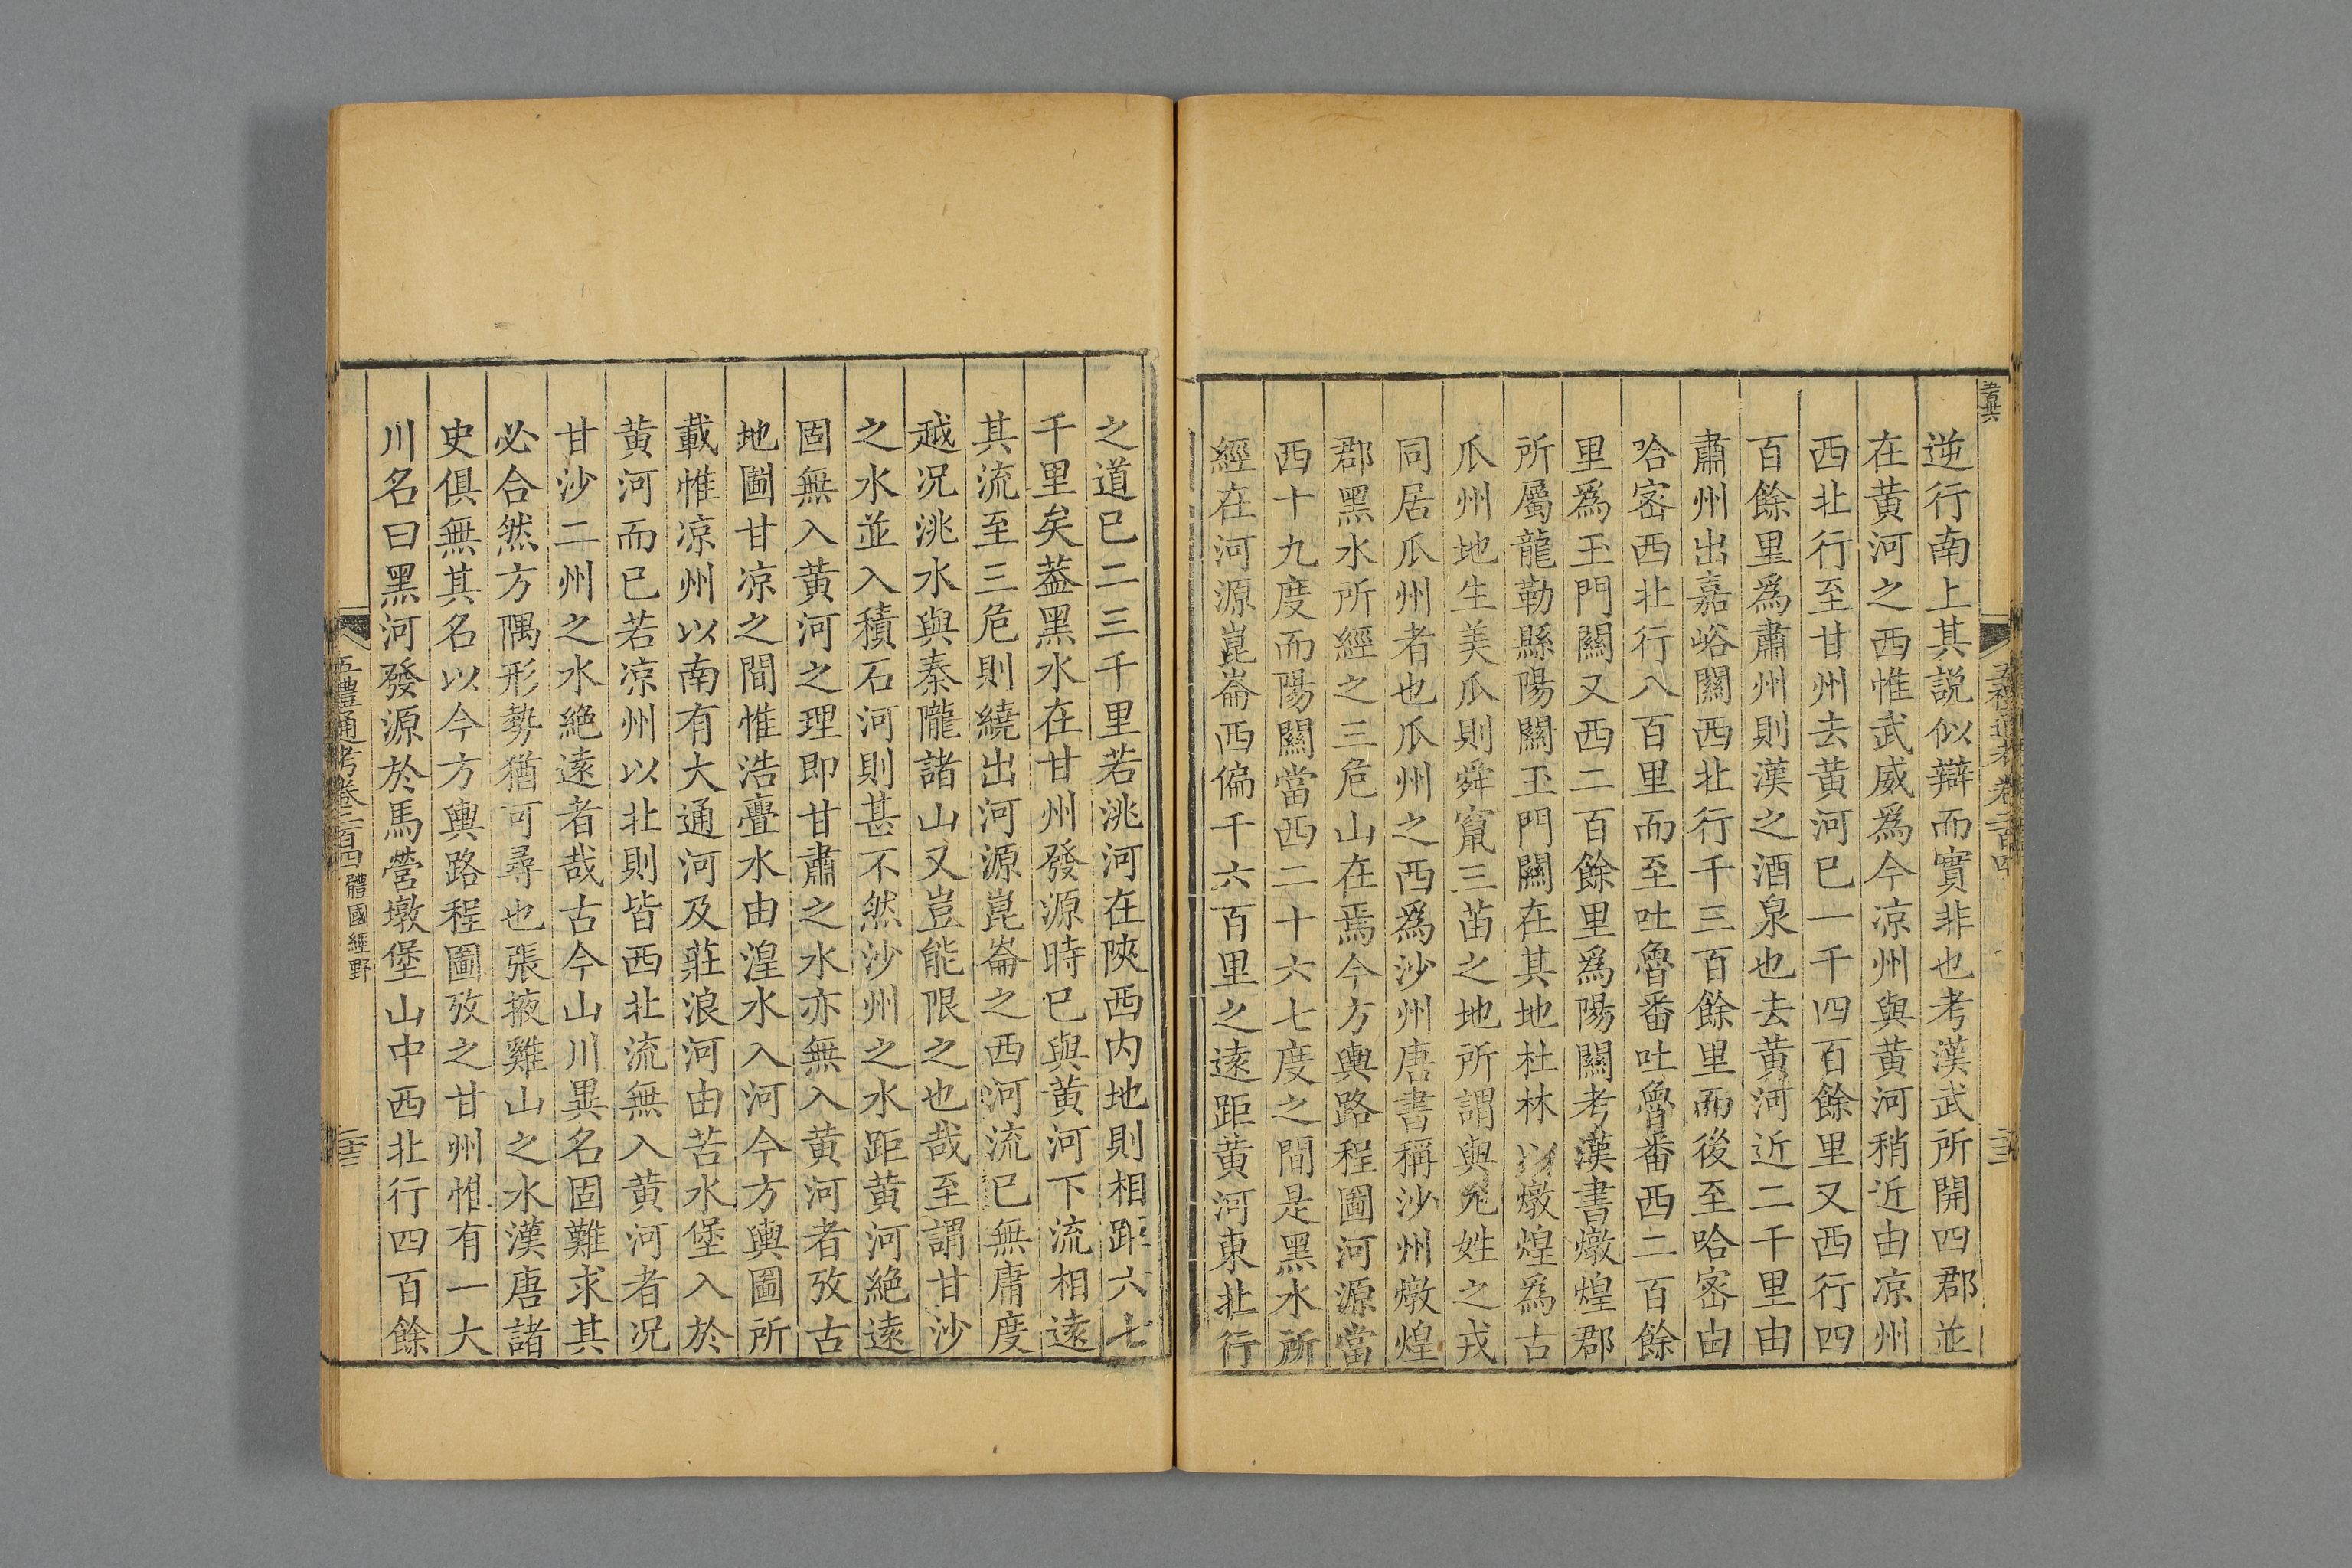 逆行南上其説似辯而實非也考漢武所開四郡並
在黄河之西惟武威爲今凉州與黄河稍近由凉州
西北行至甘州去黄河已一千四百餘里又西行四
百餘里爲肅州則漢之酒泉也去黄河近二千里由
肅州出嘉峪關西北行千三百餘里而後至哈宻由
哈宻西北行八百里而至吐魯番吐魯番西二百餘
里爲玉門關又西二百餘里爲陽關考漢書燉煌郡
所屬龍勒縣陽關玉門關在其地杜林以燉煌為古
瓜州地生美瓜則舜竄三苖之地所謂與允姓之戎
同居瓜州者也瓜州之西爲沙州唐書稱沙州燉煌
郡黑水所經之三危山在焉今方輿路程圖河源當
西十九度而陽關當西二十六七度之間是黑水所
經在河源崑崙西偏千六百里之逺距黄河東北行
之道已二三千里若洮河在陝西内地則相距六七
千里矣葢黑水在甘州發源時已與黄河下流相逺
其流至三危則繞出河源崑崙之西河流已無庸度
越况洮水與秦隴諸山又豈能限之也哉至謂甘沙
之水並入積石河則甚不然沙州之水距黄河絶逺
固無入黄河之理即甘肅之水亦無入黄河者攷古
地圖甘凉之間惟浩亹水由湟水入河今方輿圖所
載惟凉州以南有大通河及莊浪河由苦水堡入於
黄河而已若凉州以北則皆西北流無入黄河者况
甘沙二州之水絶逺者哉古今山川異名固難求其
必合然方隅形勢猶可尋也張掖雞山之水漢唐諸
史俱無其名以今方輿路程圖攷之甘州惟有一大
川名曰黑河發源於馬營墩堡山中西北行四百餘
五禮通考卷二百四 體國經野 二十三